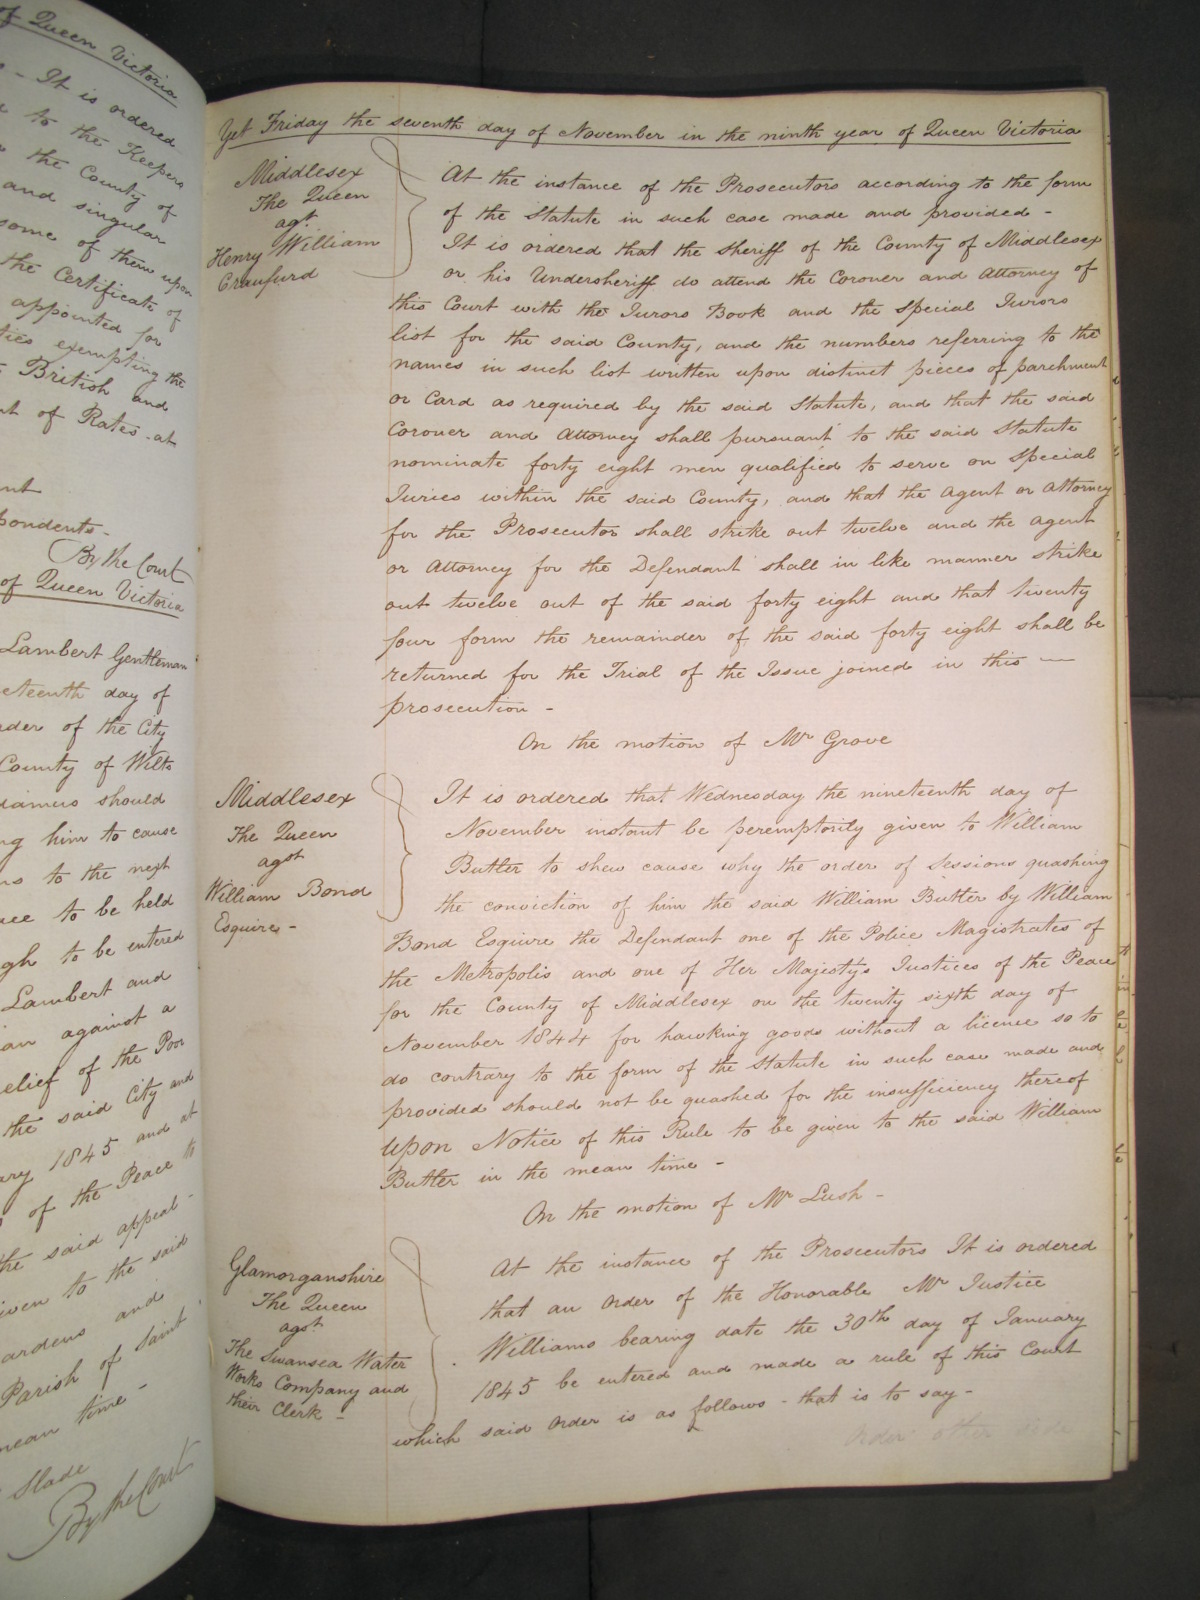 of Queen Victoria
- It is ordered
to the Keepers
the County of
and singular
some of them upon
the Certificate of
appointed for
ties exempting the
British and
nt of Rates at
nt
pondents -
By the Court
of Queen Victoria
Lambert Gentleman
eteenth day of
der of the City
County of Wilts
damus should
ng him to cause
ns to the next
nce to be held
gh to be entered
Lambert and
ian against a
elief of the Poor
the said City and
ary 1845 and at
of the Peace
the said appeal -
iven to the said
ardens and
Parish of Saint
mean time -
Slade
By the Court
Yet Friday the seventh day of November in the ninth year of Queen Victoria
Middlesex
The Queen
agt.
Henry William
Craufurd
At the instance of the Prosecutors according to the form
of the Statute in such case made and provided -
It is ordered that the Sheriff of the County of Middlesex
or his Undersheriff do attend the Coroner and Attorney of
this Court with the Jurors Book and the Special Jurors
list for the said County, and the numbers referring to the
names in such list written upon distinct pieces of parchment
or Card as required by the said Statute, and that the said
Coroner and Attorney shall pursuant to the said Statute
nominate forty eight men qualified to serve on Special
Juries within the said County, and that the Agent or Attorney
for the Prosecutor shall strike out twelve and the Agent
or Attorney for the Defendant shall in like manner strike
out twelve out of the said forty eight and that twenty
four form the remainder of the said forty eight shall be
returned for the Trial of the Issue joined in this —
prosecution -
On the motion of Mr Grove
Middlesex
The Queen
agst
William Bond
Esquire -
It is ordered that Wednesday the nineteenth day of
November instant be peremptorily given to William
Butler to shew cause why the order of Sessions quashing
the conviction of him the said William Butler by William
Bond Esquire the Defendant one of the Police Magistrates of
the Metropolis and one of Her Majesty's Justices of the Peace
for the County of Middlesex on the twenty sixth day of
November 1844 for hawking goods without a licence so to
do contrary to the form of the Statute in such case made and
provided should not be quashed for the insufficiency thereof
Upon Notice of this Rule to be given to the said William
Butler in the mean time -
On the motion of Mr Lush -
Glamorganshire
The Queen
agst
The Swansea Water
Works Company and
their Clerk -
At the instance of the Prosecutors It is ordered
that an Order of the Honorable Mr Justice
Williams bearing date the 30th day of January
1845 be entered and made a rule of this Court
which said Order is as follows - that is to say -
Order other side